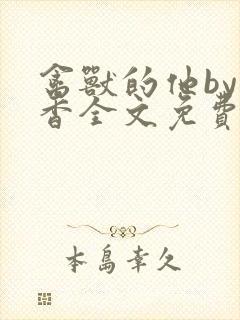 禽獸的他by
香全文免費
本島幸久